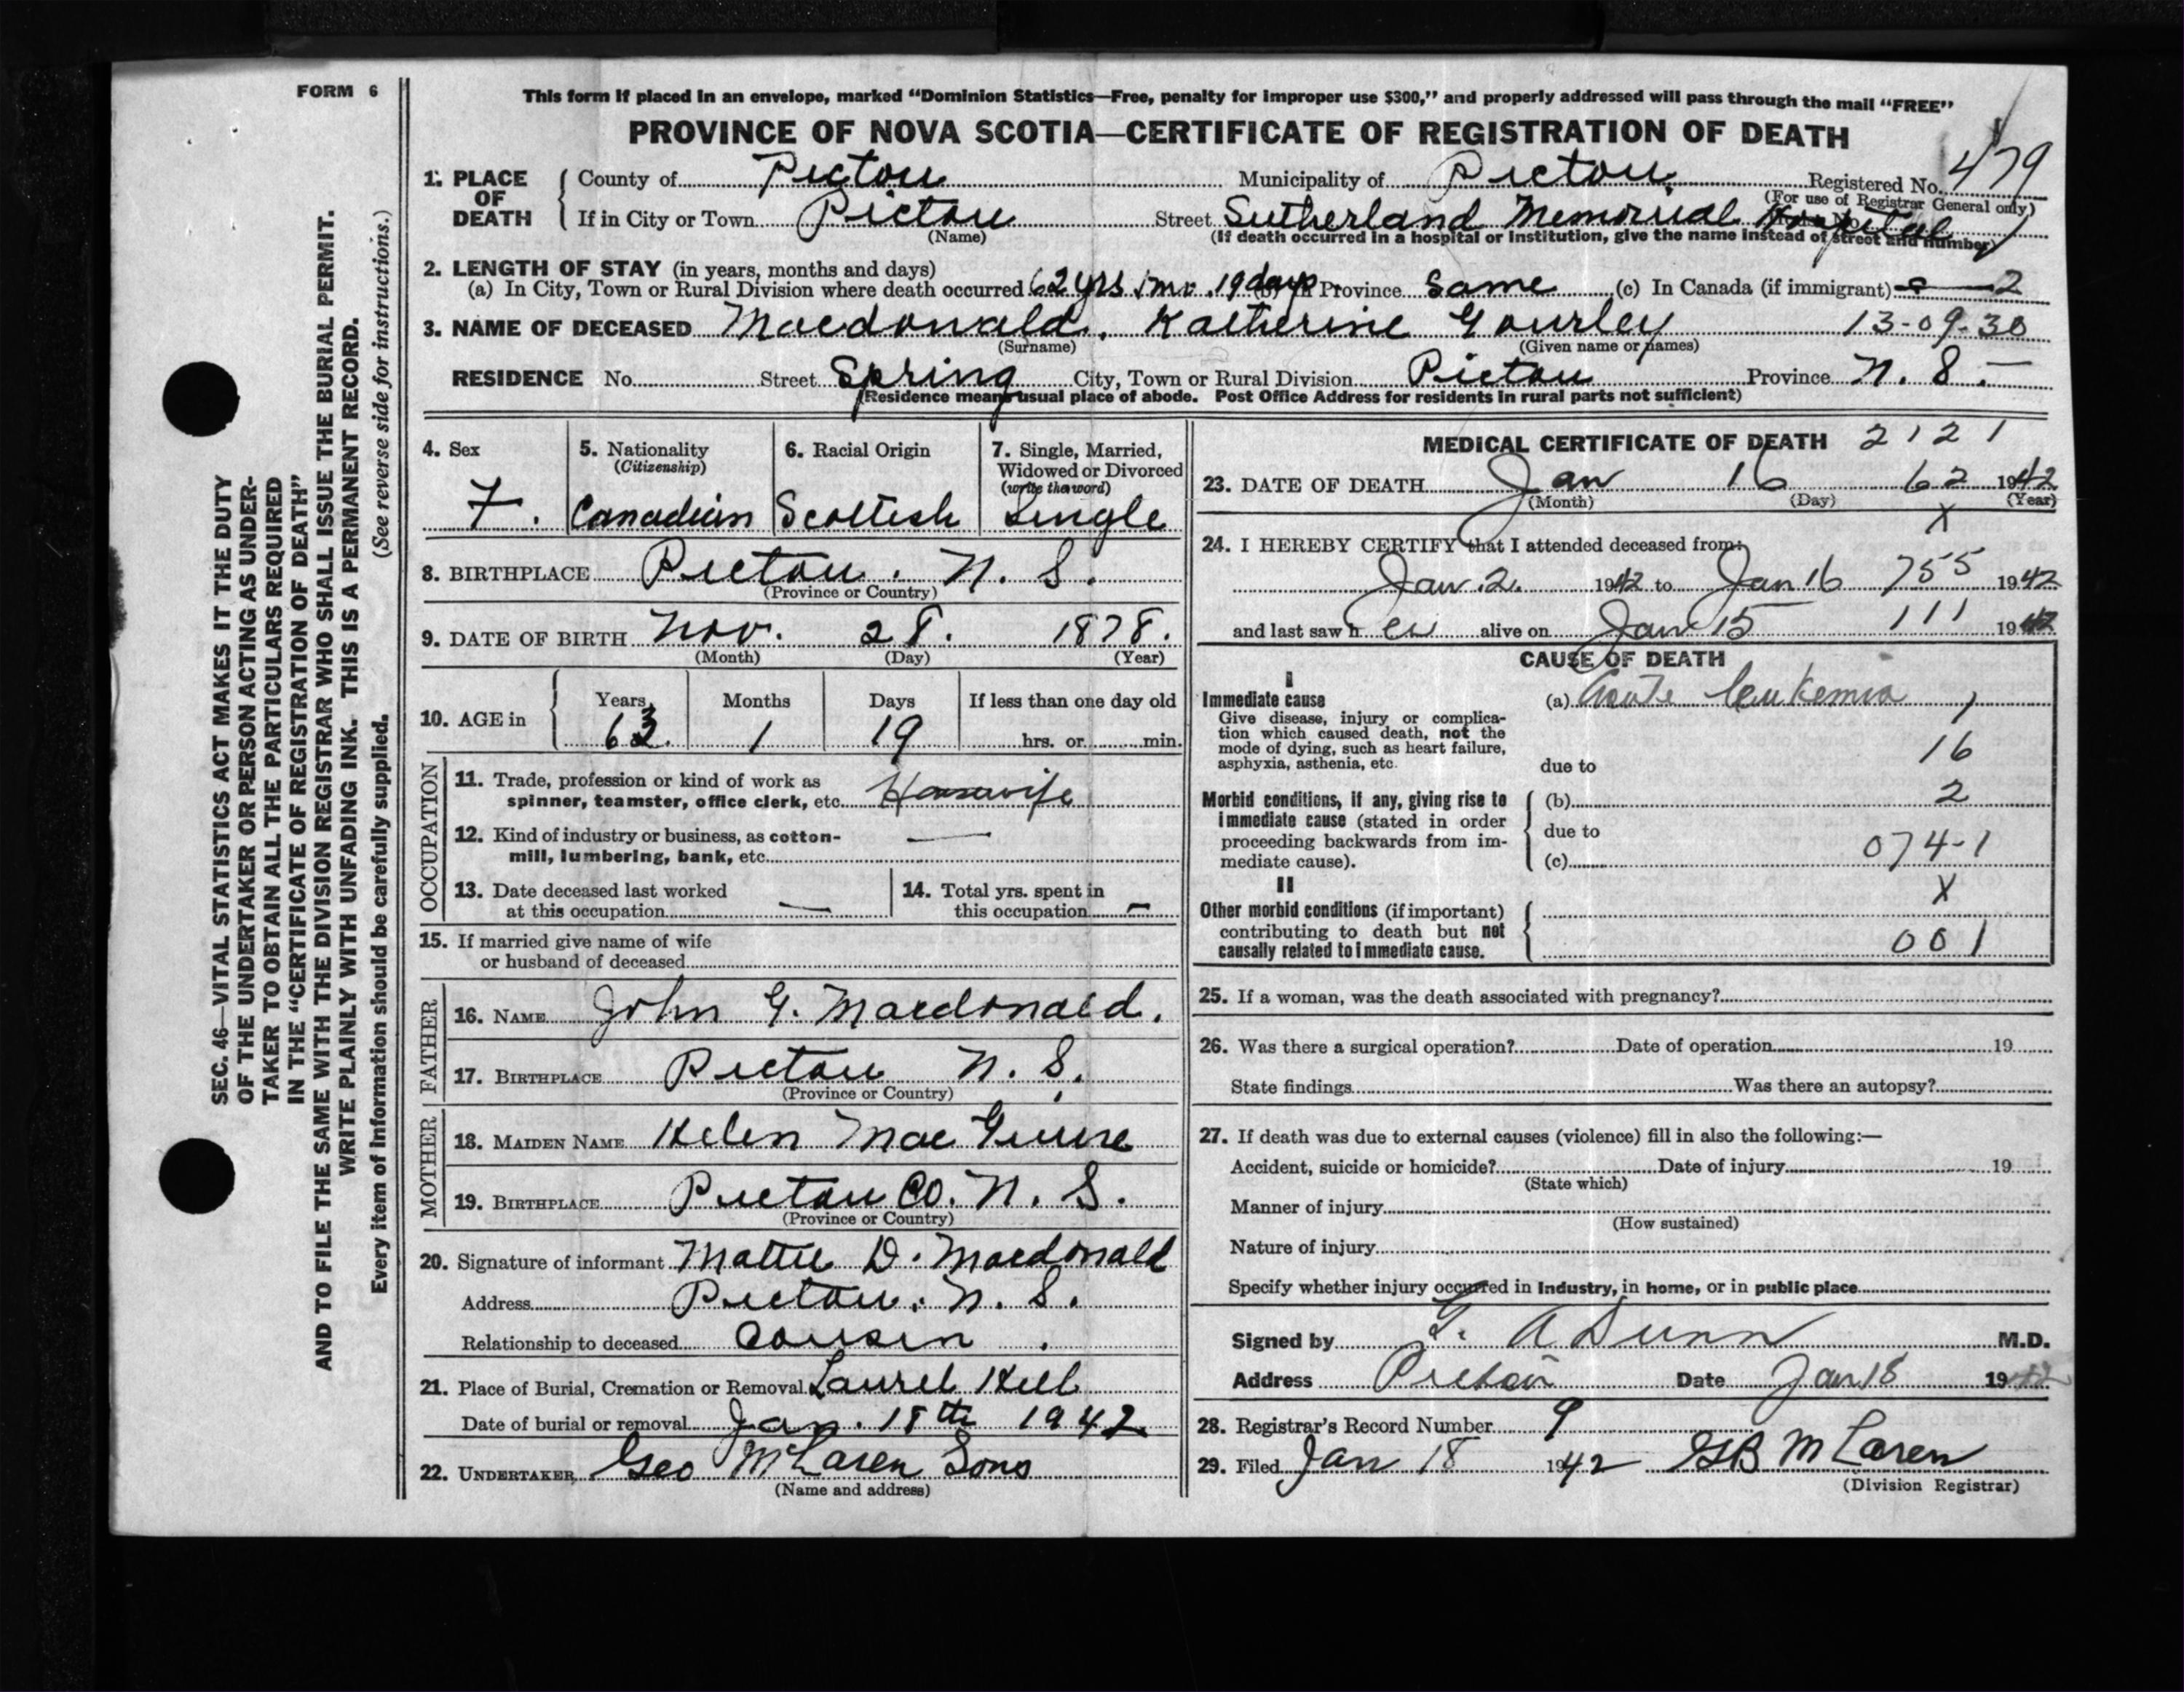 FORM 6
This form if placed in an envelope, marked "Dominion Statistics—Free, penalty for improper use $300," and properly addressed will pass through the mail "FREE"
PROVINCE OF NOVA SCOTIA—CERTIFICATE OF REGISTRATION OF DEATH
1. PLACE OF DEATH County of Pictou Municipality of Pictou Registered No. 479
(For use of Registrar General only)
If in City or Town Pictou Street Sutherland Memorial Hospital
(Name) (If death occurred in a hospital or institution, give the name instead of street and number)
2. LENGTH OF STAY (in years, months and days)
(a) In City, Town or Rural Division where death occurred 62 yrs 1 mo. 19 days (b) In Province Same (c) In Canada (if immigrant) 2
3. NAME OF DECEASED Macdonald, Katherine Gourley 13-09-30
(Surname) (Given name or names)
RESIDENCE No. Street Spring City, Town or Rural Division Pictou Province N. S.
(Residence means usual place of abode. Post Office Address for residents in rural parts not sufficient)
4. Sex F.
5. Nationality (Citizenship) Canadian
6. Racial Origin Scottish
7. Single, Married, Widowed or Divorced (write the word) Single
8. BIRTHPLACE Pictou. N. S.
(Province or Country)
9. DATE OF BIRTH Nov. 28. 1878.
(Month) (Day) (Year)
10. AGE in Years 63. Months 1 Days 19 If less than one day old hrs. or min.
OCCUPATION
11. Trade, profession or kind of work as spinner, teamster, office clerk, etc. Housewife
12. Kind of industry or business, as cotton-mill, lumbering, bank, etc. —
13. Date deceased last worked at this occupation —
14. Total yrs. spent in this occupation —
15. If married give name of wife or husband of deceased
FATHER
16. NAME John G. Macdonald.
17. BIRTHPLACE Pictou N. S.
(Province or Country)
MOTHER
18. MAIDEN NAME Helen Mac
19. BIRTHPLACE Pictou Co. N. S.
(Province or Country)
20. Signature of informant Mattie D. Macdonald
Address Pictou. N. S.
Relationship to deceased Cousin.
21. Place of Burial, Cremation or Removal Laurel Hill
Date of burial or removal Jan. 18th 1942.
22. UNDERTAKER Geo McLaren Sons
(Name and address)
MEDICAL CERTIFICATE OF DEATH 2121
23. DATE OF DEATH Jan 16 62 1942
(Month) (Day) (Year)
X
24. I HEREBY CERTIFY that I attended deceased from:
Jan. 2. 1942 to Jan 16 755 1942
and last saw h er alive on Jan 15 111 1942
CAUSE OF DEATH
I
Immediate cause (a) Acute leukemia 1
Give disease, injury or complication which caused death, not the mode of dying, such as heart failure, asphyxia, asthenia, etc.
16
due to
Morbid conditions, if any, giving rise to immediate cause (stated in order proceeding backwards from immediate cause).
(b) 2
due to
(c) 074-1
II
X
Other morbid conditions (if important) contributing to death but not causally related to immediate cause.
001
25. If a woman, was the death associated with pregnancy?
26. Was there a surgical operation? Date of operation 19
State findings Was there an autopsy?
27. If death was due to external causes (violence) fill in also the following:—
Accident, suicide or homicide? Date of injury 19
(State which)
Manner of injury
(How sustained)
Nature of injury
Specify whether injury occurred in industry, in home, or in public place
Signed by G. A Dunn M.D.
Address Pictou Date Jan 18 1942
28. Registrar's Record Number 9
29. Filed Jan 18 1942 GB McLaren
(Division Registrar)
SEC. 46—VITAL STATISTICS ACT MAKES IT THE DUTY
OF THE UNDERTAKER OR PERSON ACTING AS UNDER-
TAKER TO OBTAIN ALL THE PARTICULARS REQUIRED
IN THE "CERTIFICATE OF REGISTRATION OF DEATH"
AND TO FILE THE SAME WITH THE DIVISION REGISTRAR WHO SHALL ISSUE THE BURIAL PERMIT.
WRITE PLAINLY WITH UNFADING INK. THIS IS A PERMANENT RECORD.
Every item of information should be carefully supplied. (See reverse side for instructions.)